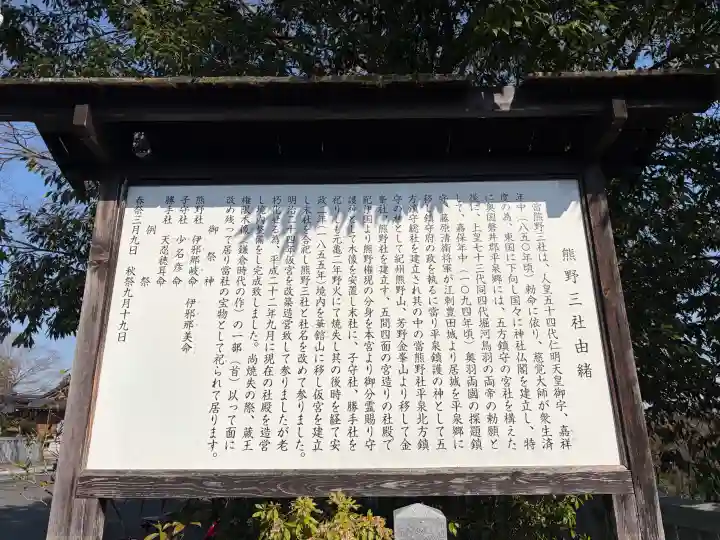 熊野三社由緒
当熊野三社は、人皇五十四代仁明天皇御宇、嘉祥
年中(八五〇年頃)勅命に依り、慈覚大師が衆生済
度の為、東国に下向し国々に神社仏閣を建立し、特
に奥国磐井郡平泉郷には、五方鎮守の宮社を構えた
後に、上皇七十三代同四代堀河鳥羽の両帝の勅願と
して、嘉保年中(一〇九四年頃)、奥羽両國の探題鎮
守、藤原清衡将軍が江刺豊田城より居城を平泉郷に
移し鎮守府の政を執るに當り平泉鎮護の神として五
方鎮守総社を建立され其の中の當熊野社平泉北方鎮
守の神として紀州熊野山、芳野金峯山より移して金
峯社、熊野社を建立す、五間四面の宮造りの社殿で
紀伊国より熊野権現の分身を本宮より御分霊賜り守
護神として木像を安置し末社に、子守社、勝手社を
祀りしも元亀二年野火にて焼失し其の後時を経て安
政二年(一八五五年)境内を華館山に移し仮宮を建立
し末社を合祀し熊野三社と社名を改めて参りました。
明治二十四年仮宮を改築造営致して参りましたが老
朽化せる為、平成二十二年九月に現在の社殿を造営
し境内整備をし完成致しました。尚焼失の際、蔵王
権現木像(鎌倉時代の作)の一部(首)以って面に
改め残って居り當社の宝物として祀られて居ります。
御祭神
熊野社 伊邪那岐命 伊邪那美命
子守社 少名彦命
勝手社 天忍穂耳命
例祭
春祭三月九日 秋祭九月十九日